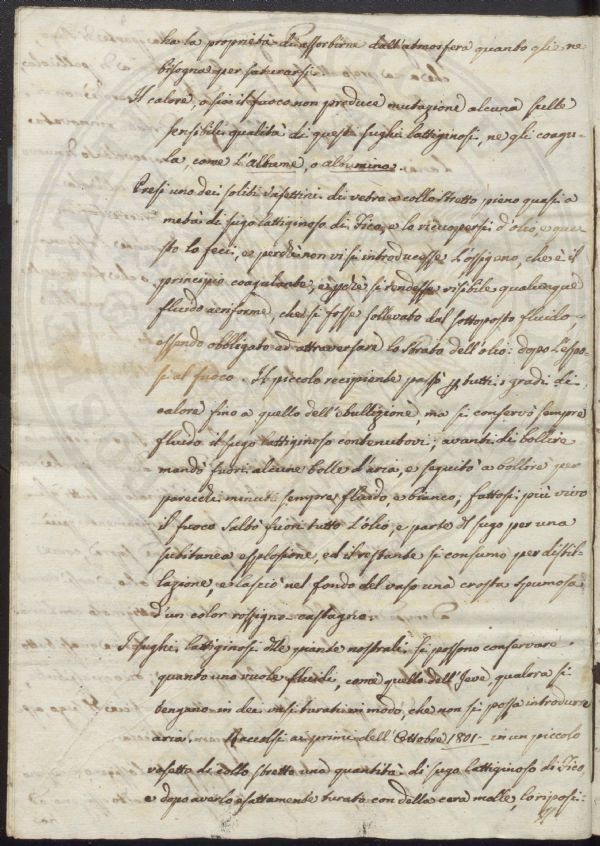 ha la proprietà di assorbirne dall'atmosfera quanto gli ne
bisogna per saturarsi.
Il calore, o sia il fuoco non produce mutazione alcuna sulle
sensibili qualità di questi sughi lattiginosi, ne gli coagu-
la, come l'albume, o albumina.
Presi uno dei soliti vasettini di vetro a collo stretto pieno quasi a
metà di sugo lattiginoso di Fico, e lo ricuopersi d'olio, e que
sto lo feci, e perchè non vi si introducesse l'ossigeno, che è il
principio coagulante, e perchè si rendesse visibile qualunque
fluido aeriforme, che si fosse sollevato dal sottoposto fluido,
essendo obbligato ad attraversare lo strato dell'olio: dopo l'espo-
si al fuoco. Il piccolo recipiente passò per tutti i gradi di
calore fino a quello dell'ebullizione, ma si conservò sempre
fluido il sugo lattiginoso contenutovi; avanti di bollire
mandò fuori alcune bolle d'aria, e seguitò a bollire per
parecchi minuti sempre fluido e bianco, fattosi più vivo
il fuoco saltò fuori tutto l'olio, e parte del sugo per una
subitanea esplosione, ed il restante si consumò per distil-
lazione, e lasciò nel fondo del vaso una crosta spumosa
d'un color rossigno-castagno.
I sughi lattiginosi delle piante nostrali si possono conservare
quanto uno vuole fluidi, come quello dell'Jeve qualora si
tengano in dei vasi turati in modo, che non si possa introdurre
aria. Raccolsi ai primi dell'Ottobre 1801 in un piccolo
vasetto di collo stretto una quantità di sugo lattiginoso di Fico
e dopo averlo esattamente turato con della cera molle, lo riposi-